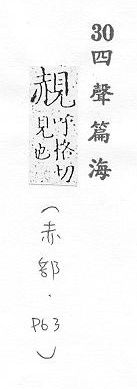 30四聲篇海
赩呼格切見也
（赤部．P63）